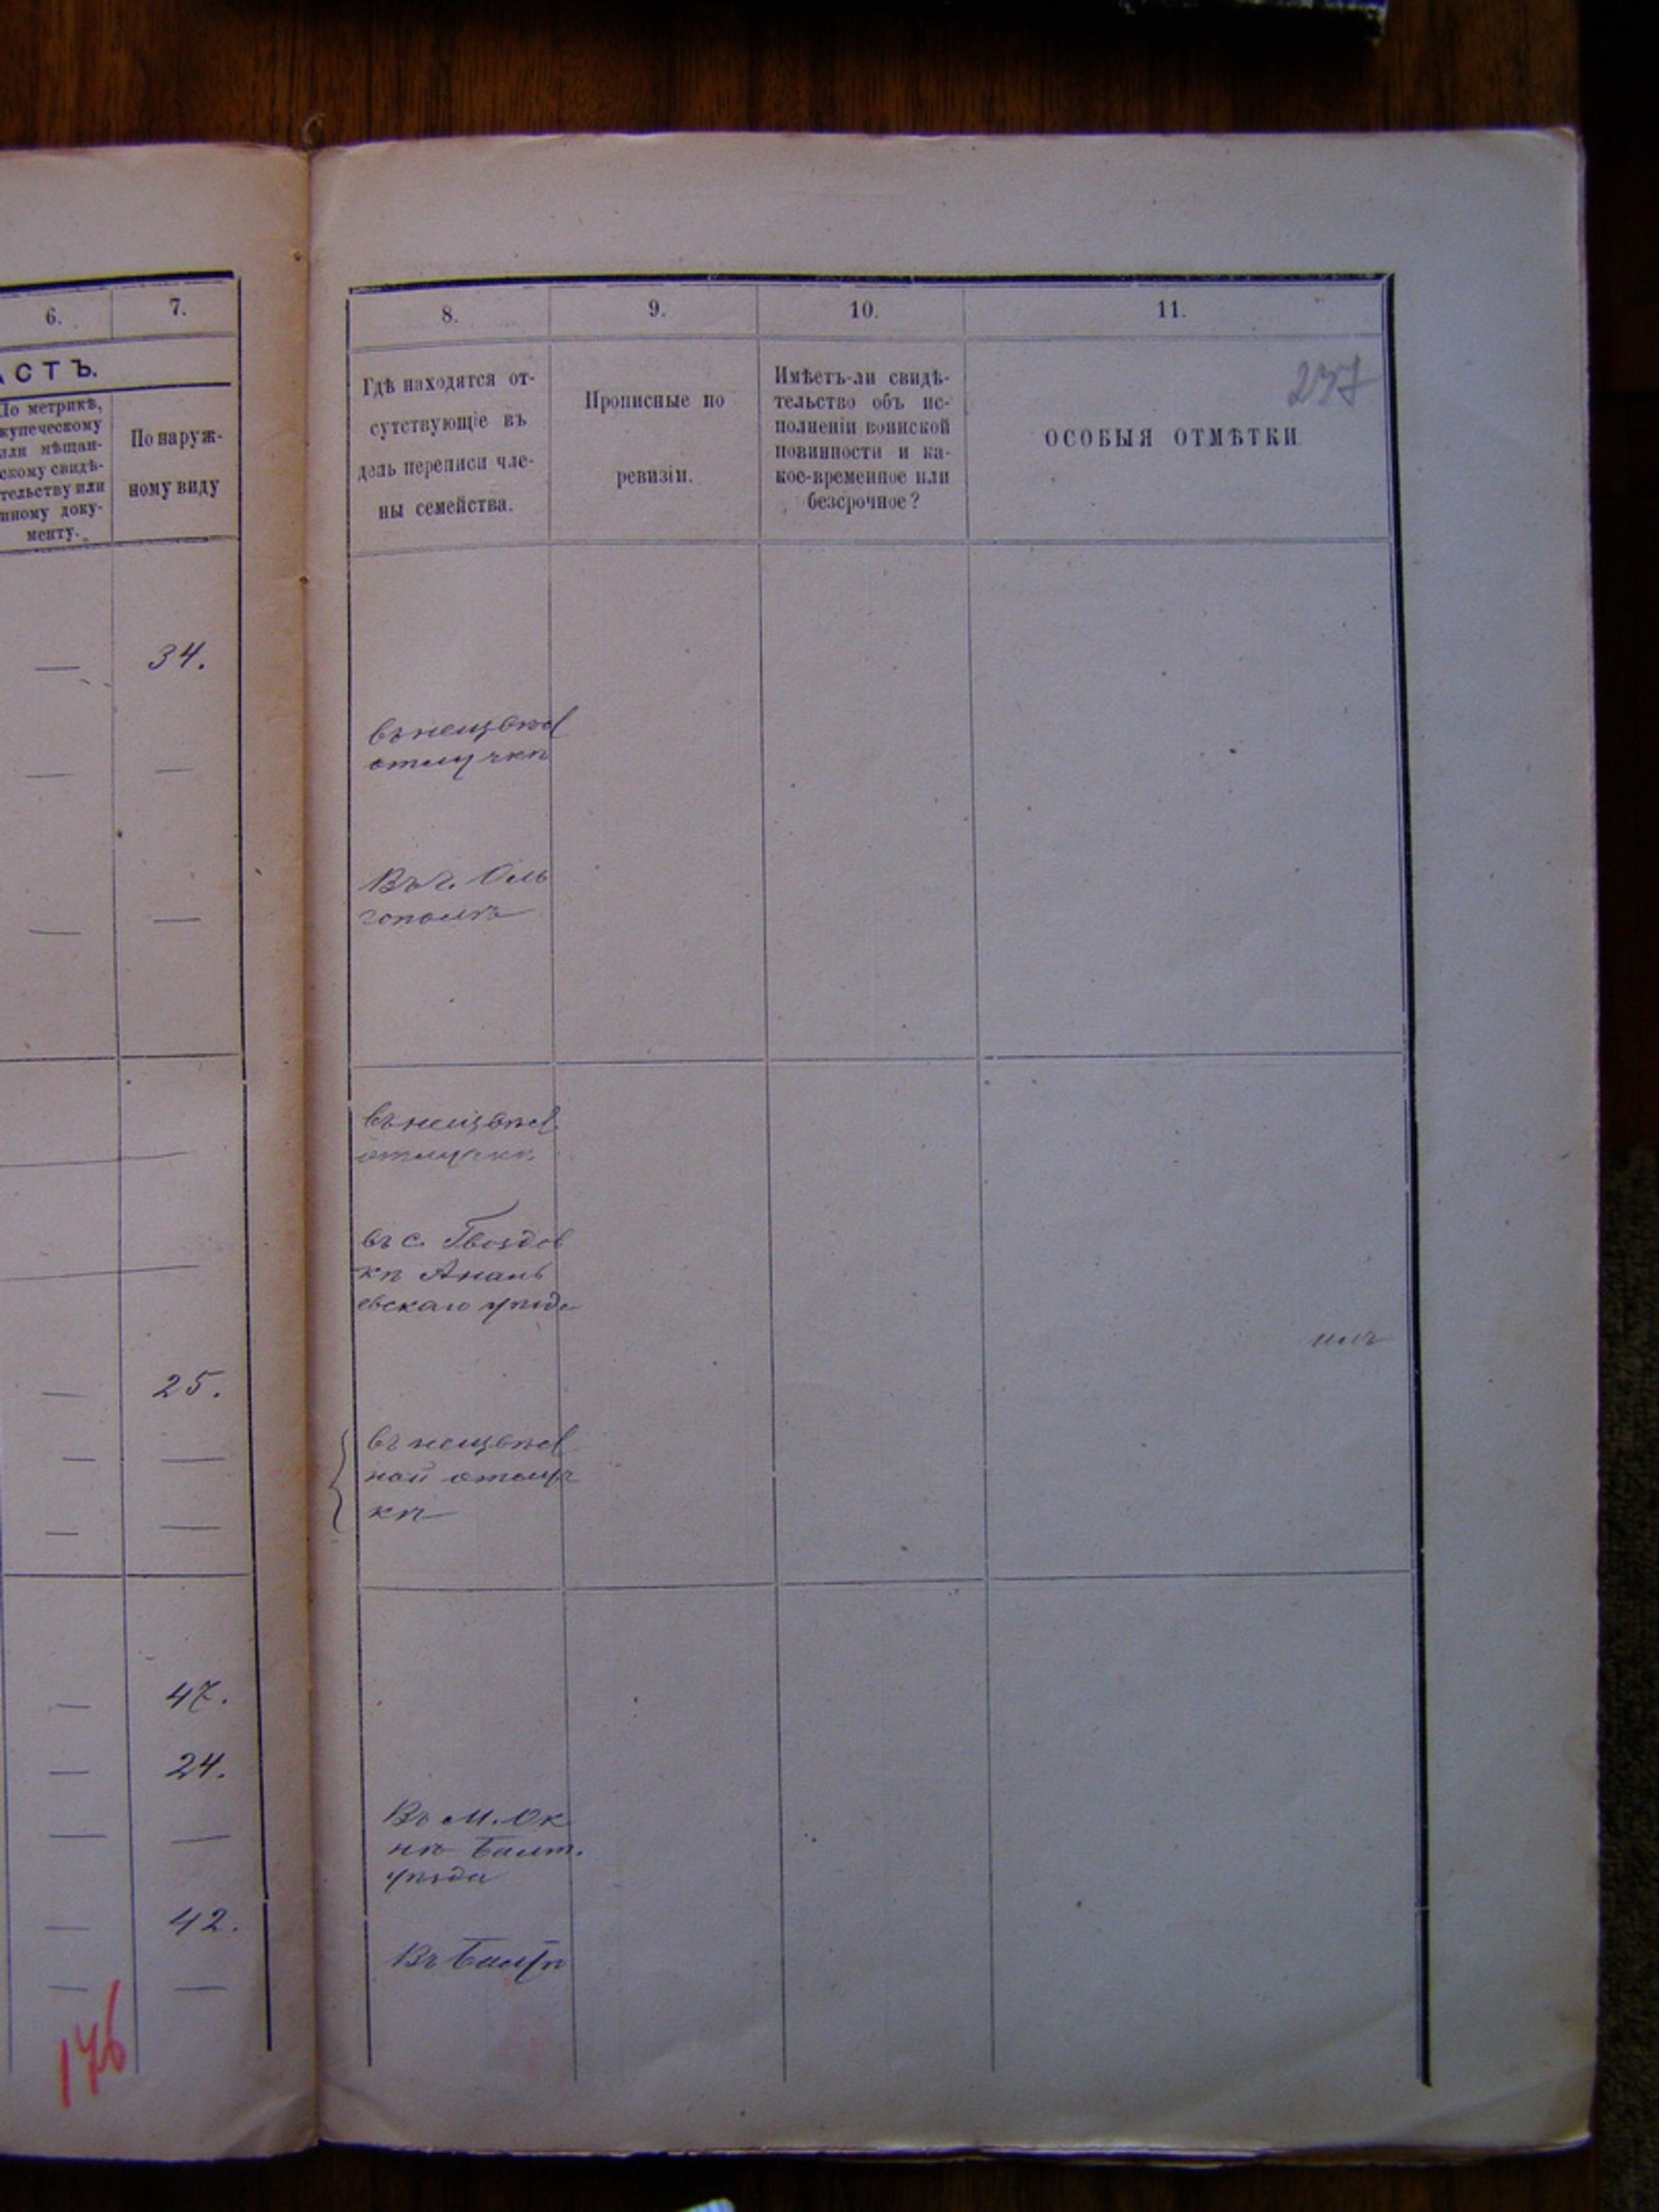 6.
7.
АСТЪ.
По метрикѣ,
купеческому
или мѣщан-
скому свидѣ-
тельству или
иному доку-
менту.
По наруж-
ному виду
— 34.
— —
— —
— 25.
— —
— —
— 47.
— 24.
— —
— 42.
— —
176
8.
9.
10.
11.
237
Гдѣ находятся от-
сутствующіе въ
день переписи чле-
ны семейства.
Прописные по
ревизіи.
Имѣетъ-ли свидѣ-
тельство объ ис-
полненіи воинской
повинности и ка-
кое-временное или
безсрочное?
ОСОБЫЯ ОТМѢТКИ
въ неизвѣсс
отлучкѣ
Въ г. Оль
гополѣ
въ неизвѣс
отлучкѣ
въ с. Гвоздов
кѣ Анань
евскаго уѣзда
въ неизвѣс
ной отлуч
кѣ
Въ м. Ок
нѣ Балт.
уѣзда
Въ Балтѣ